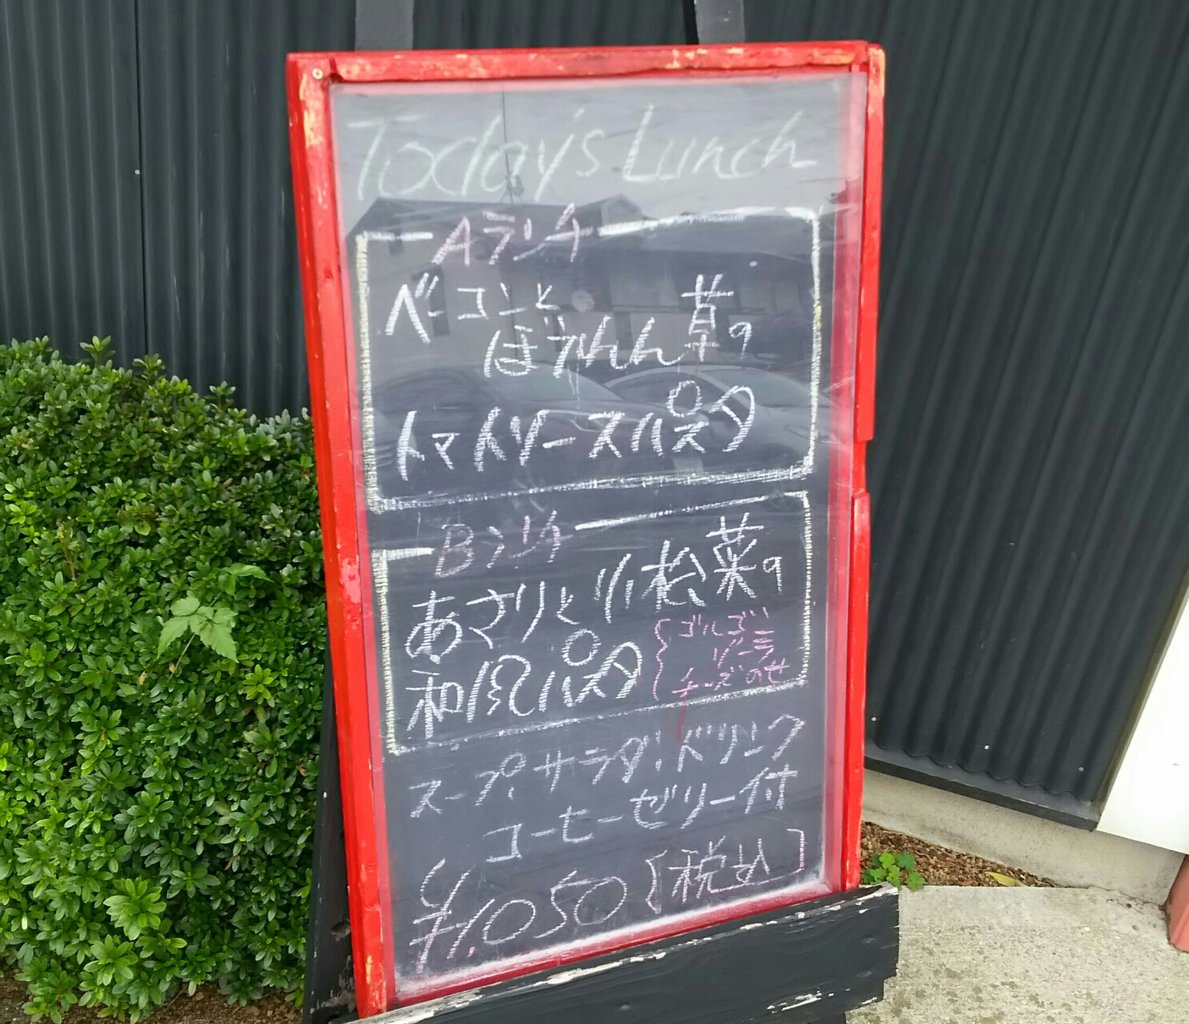 Today's Lunch
Aランチ
ベーコンと
ほうれん草の
トマトソースパスタ
Bランチ
あさりと小松菜の
和風パスタ
ゴルゴン
ゾーラ
チーズのせ
スープ・サラダ・ドリンク
コーヒーゼリー付
¥1,050 [税込]